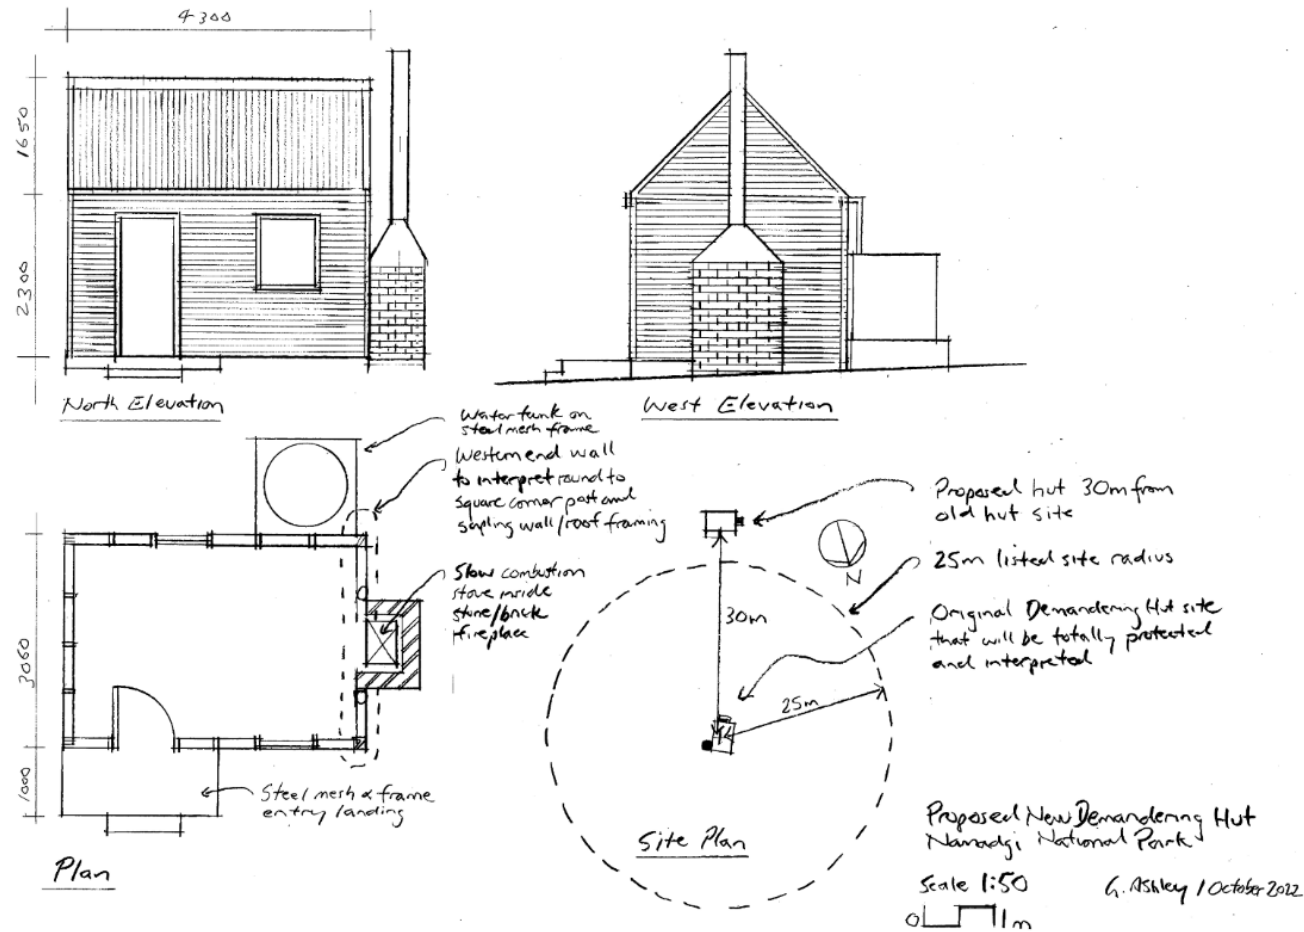 4300
1650
2300
North Elevation
West Elevation
Water tank on
steel mesh frame
Western end wall
to interpret round to
square corner post and
sapling wall/roof framing
Slow combustion
stove inside
stone/brick
fireplace
3060
1000
Steel mesh & frame
entry landing
Plan
Proposed hut 30m from
old hut site
N
25m listed site radius
Original Demandering Hut site
that will be totally protected
and interpreted
30m
25m
Site Plan
Proposed New Demandering Hut
Namadgi National Park
Scale 1:50
G. Ashley / October 2022
0 1m